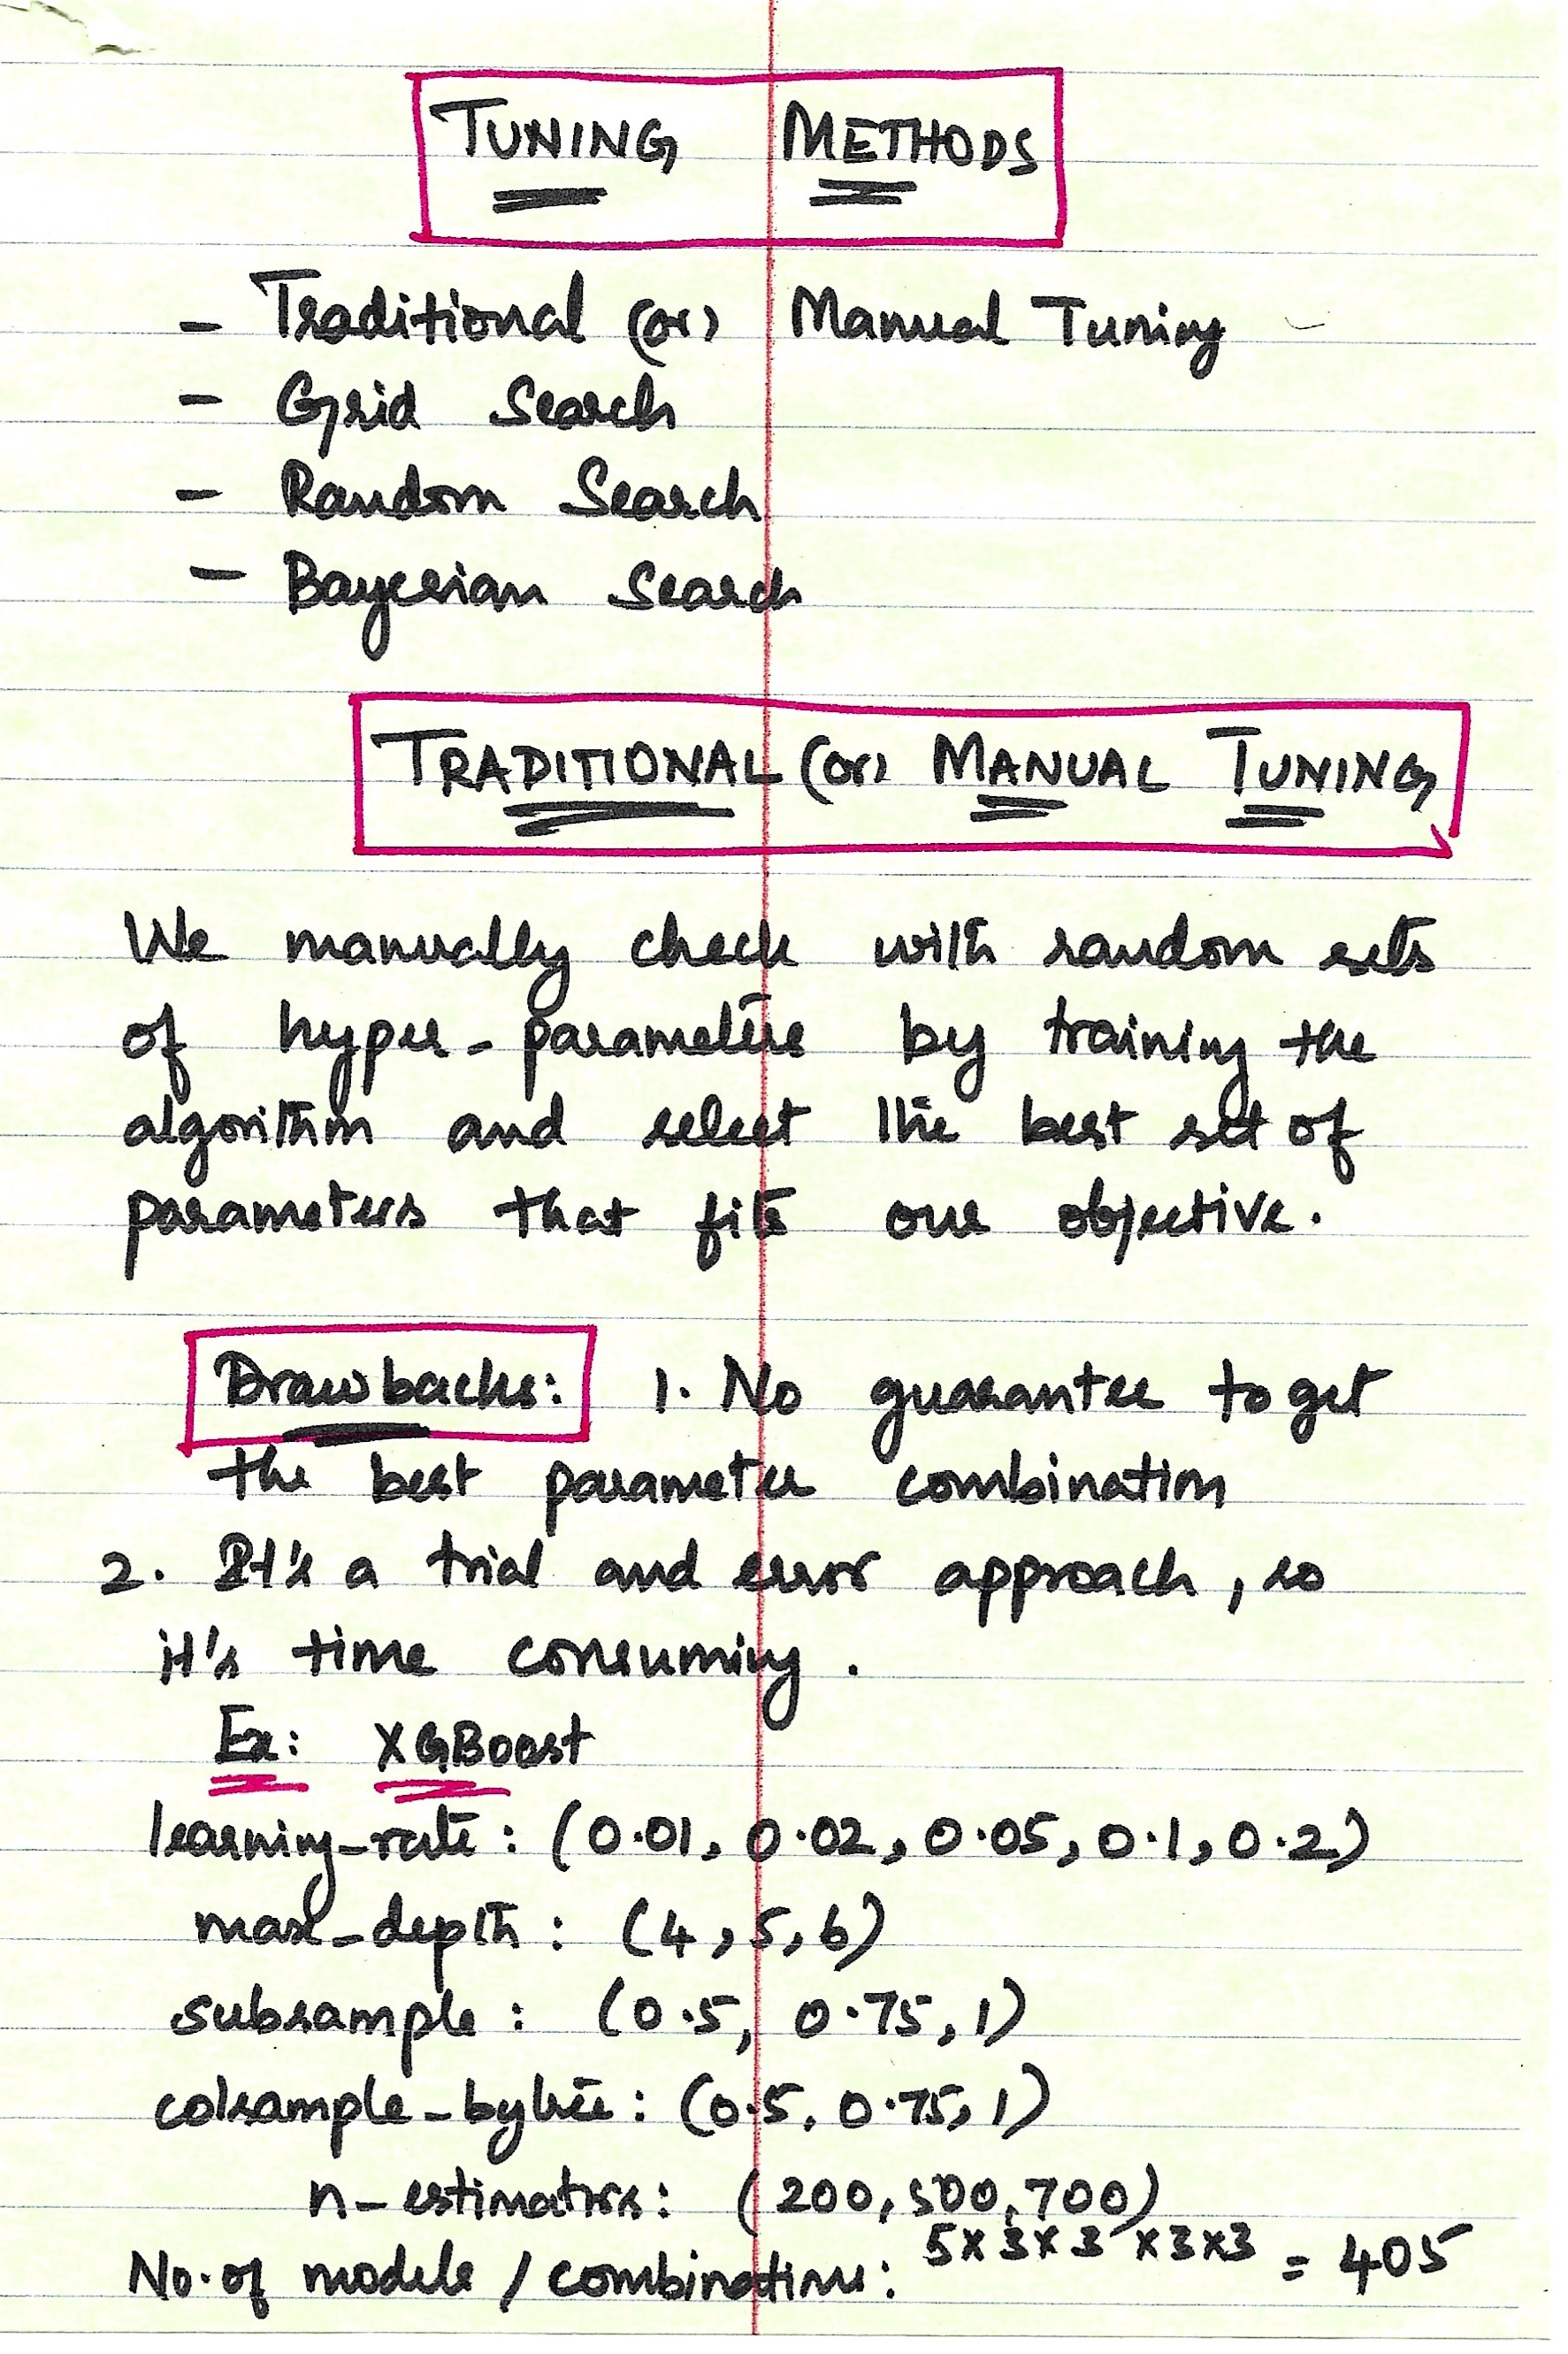 TUNING METHODS
- Traditional (or) Manual Tuning
- Grid Search
- Random Search
- Bayesian Search
TRADITIONAL (or) MANUAL TUNING
We manually check with random sets
of hyper-parameters by training the
algorithm and select the best set of
parameters that fits our objective.
Drawbacks: 1. No guarantee to get
the best parameter combination
2. It's a trial and error approach, so
it's time consuming.
Ex: XGBoost
learning_rate: (0.01, 0.02, 0.05, 0.1, 0.2)
max_depth: (4, 5, 6)
subsample: (0.5, 0.75, 1)
colsample_bytree: (0.5, 0.75, 1)
n-estimators: (200, 500, 700)
No. of models / combinations: 5x3x3x3x3 = 405